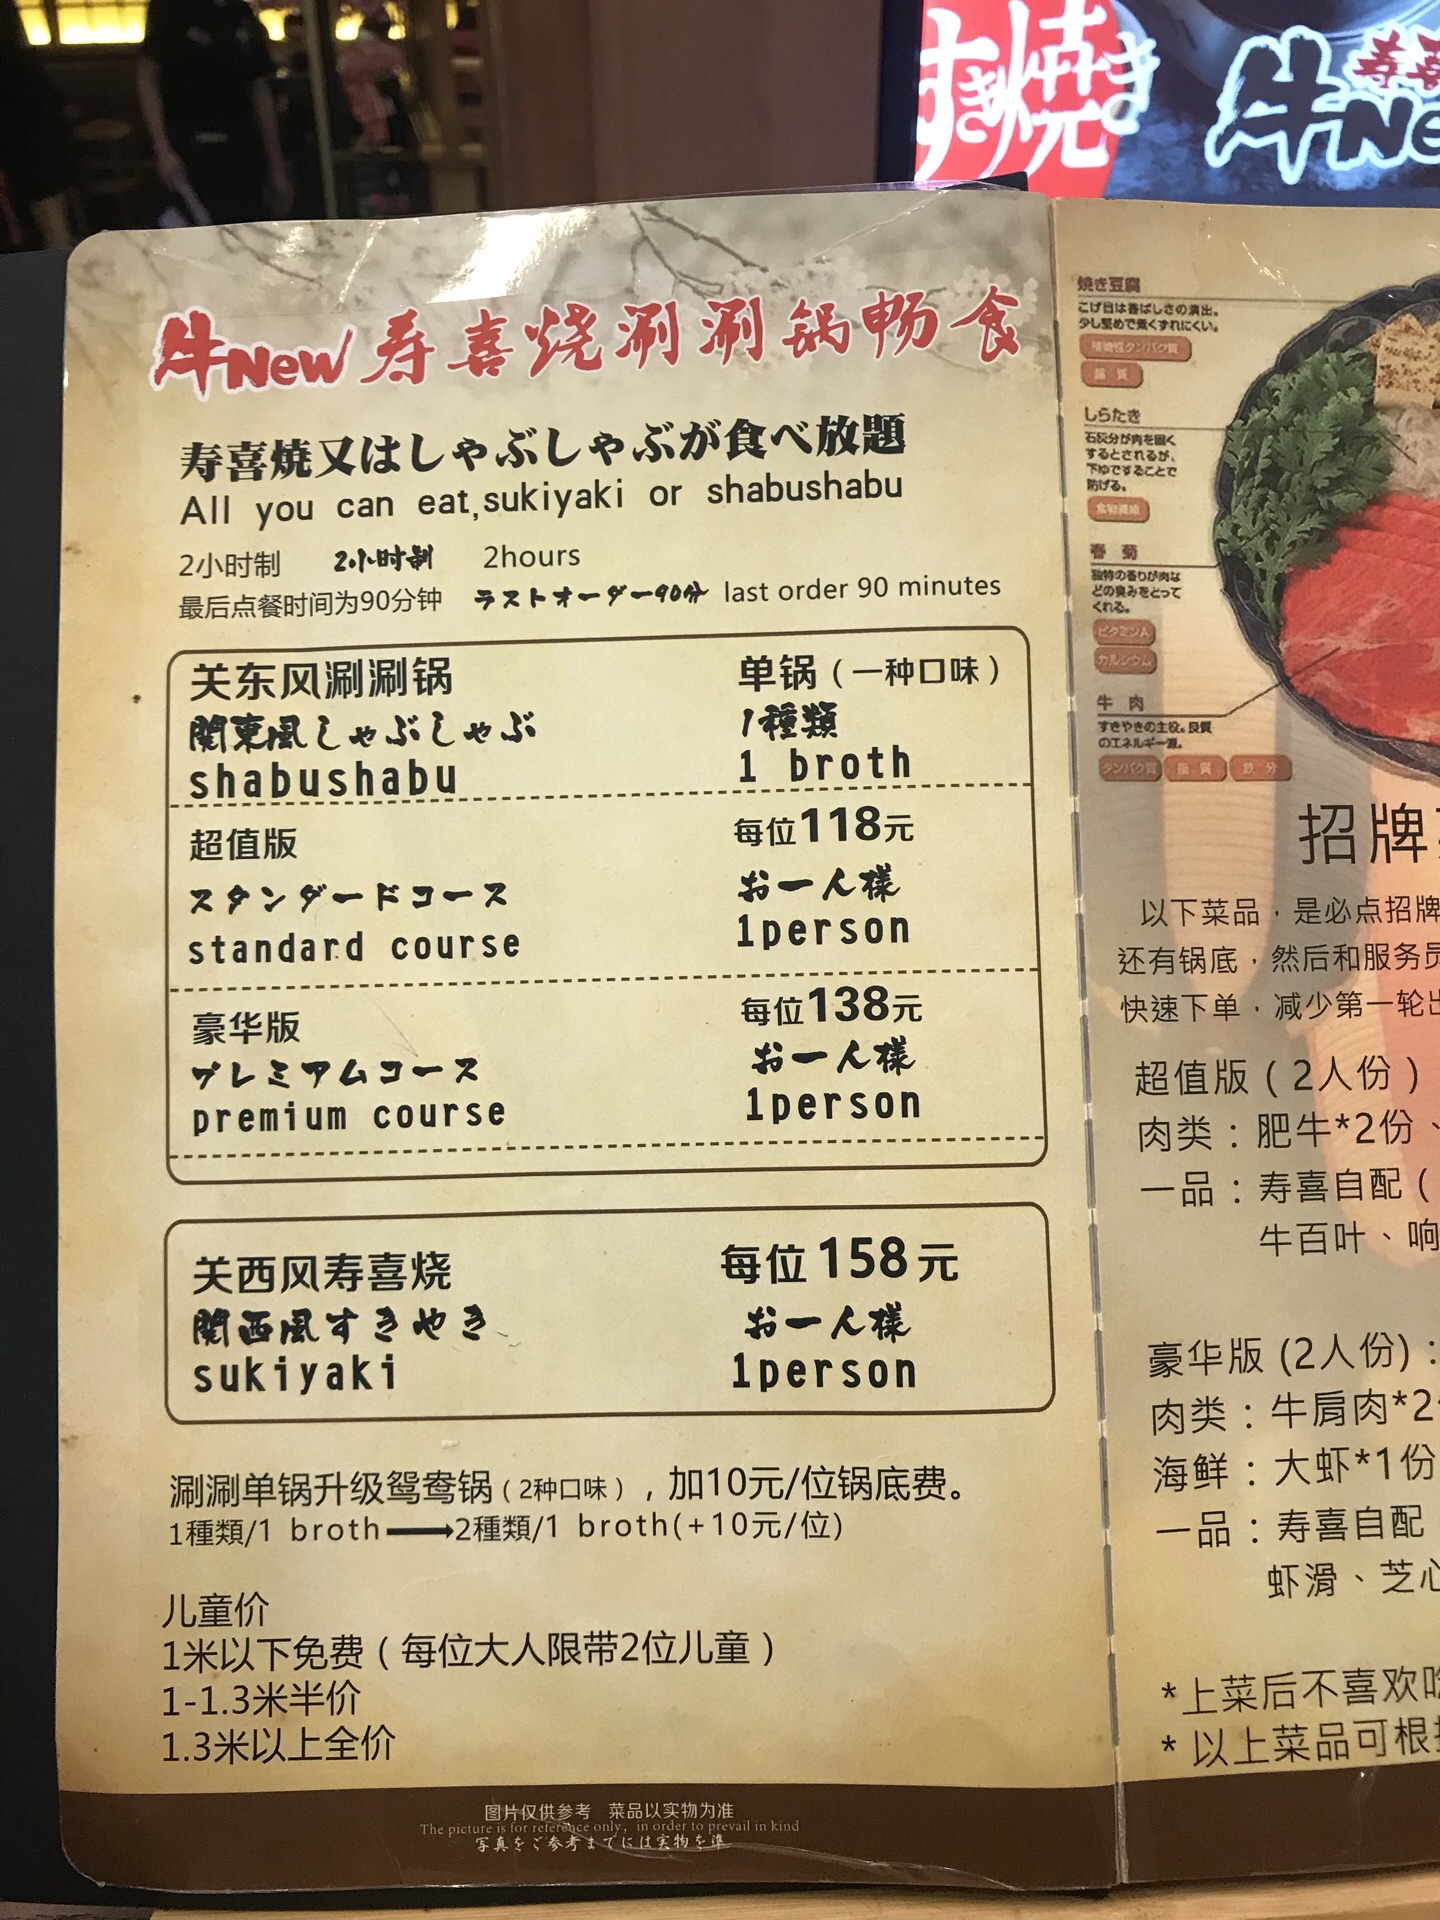 すき焼き
寿喜
牛New
牛New 寿喜烧涮涮锅畅食
寿喜焼又はしゃぶしゃぶが食べ放題
All you can eat,sukiyaki or shabushabu
2小时制 2小时制 2hours
最后点餐时间为90分钟 ラストオーダー90分 last order 90 minutes
关东风涮涮锅 单锅（一种口味）
関東風しゃぶしゃぶ 1種類
shabushabu 1 broth
超值版 每位118元
スタンダードコース お一人様
standard course 1person
豪华版 每位138元
プレミアムコース お一人様
premium course 1person
关西风寿喜烧 每位158元
関西風すきやき お一人様
sukiyaki 1person
涮涮单锅升级鸳鸯锅（2种口味），加10元/位锅底费。
1種類/1 broth→2種類/1 broth(+10元/位)
儿童价
1米以下免费（每位大人限带2位儿童）
1-1.3米半价
1.3米以上全价
图片仅供参考 菜品以实物为准
The picture is for reference only, in order to prevail in kind
写真をご参考までには実物を準
焼き豆腐
こげ目は香ばしさの演出。
少し堅めで煮くずれにくい。
植物性タンパク質
脂質
しらたき
石灰分が肉を固く
するとされるが、
下ゆですることで
防げる。
食物繊維
春菊
独特の香りが肉な
どの臭みをとって
くれる。
ビタミンA
カルシウム
牛肉
すきやきの主役。良質
のエネルギー源。
タンパク質 脂質 鉄分
招牌
以下菜品，是必点招牌
还有锅底，然后和服务员
快速下单，减少第一轮出
超值版（2人份）
肉类：肥牛*2份、
一品：寿喜自配（
牛百叶、响
豪华版 (2人份)：
肉类：牛肩肉*2
海鲜：大虾*1份
一品：寿喜自配
虾滑、芝心
*上菜后不喜欢吃
*以上菜品可根据